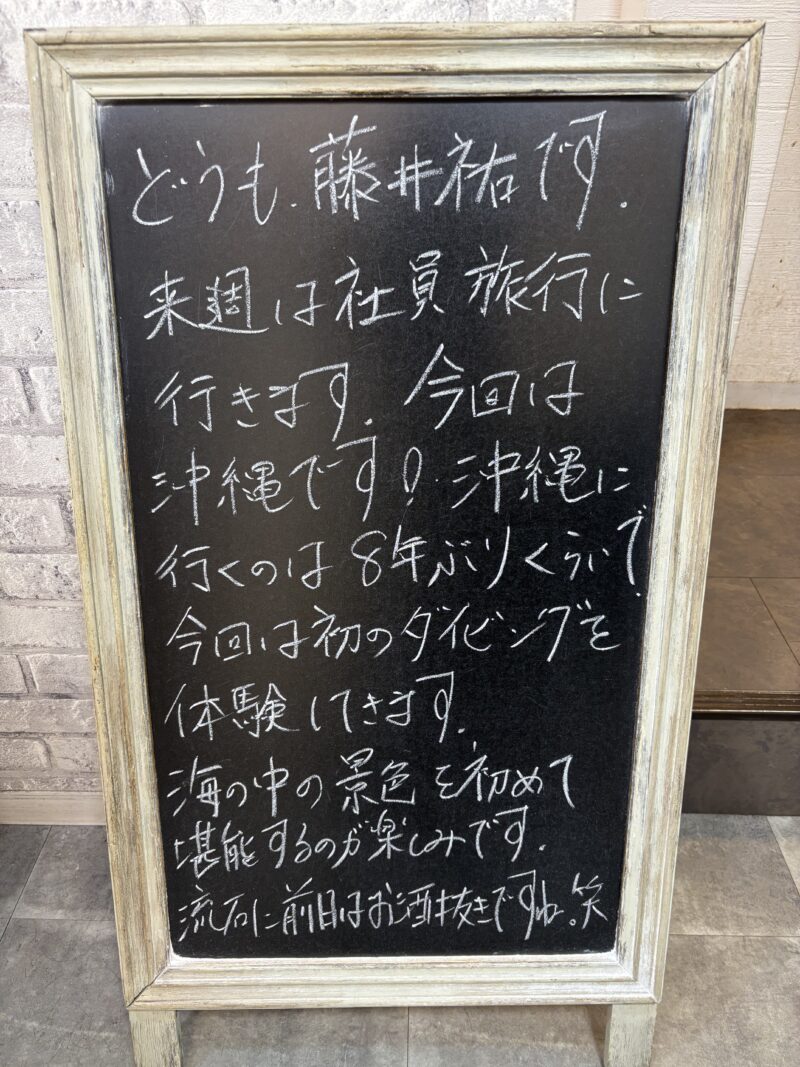 どうも、藤井祐です。
来週は社員旅行に
行きます。今回は
沖縄です！沖縄に
行くのは8年ぶりくらいで、
今回は初のダイビングを
体験してきます。
海の中の景色を初めて
堪能するのが楽しみです。
流石に前日はお酒抜きですね。笑